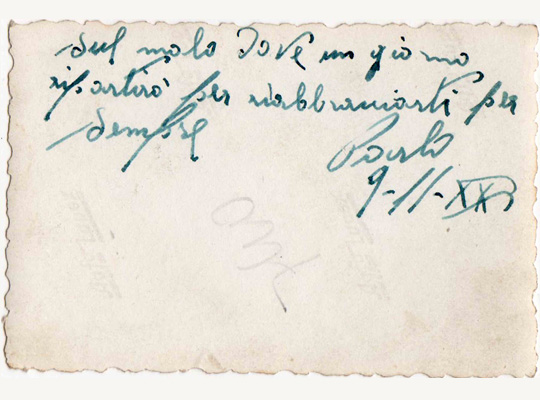 sul molo dove un giorno
ripartirò per riabbracciarti per
sempre
Paolo
9-11-XX